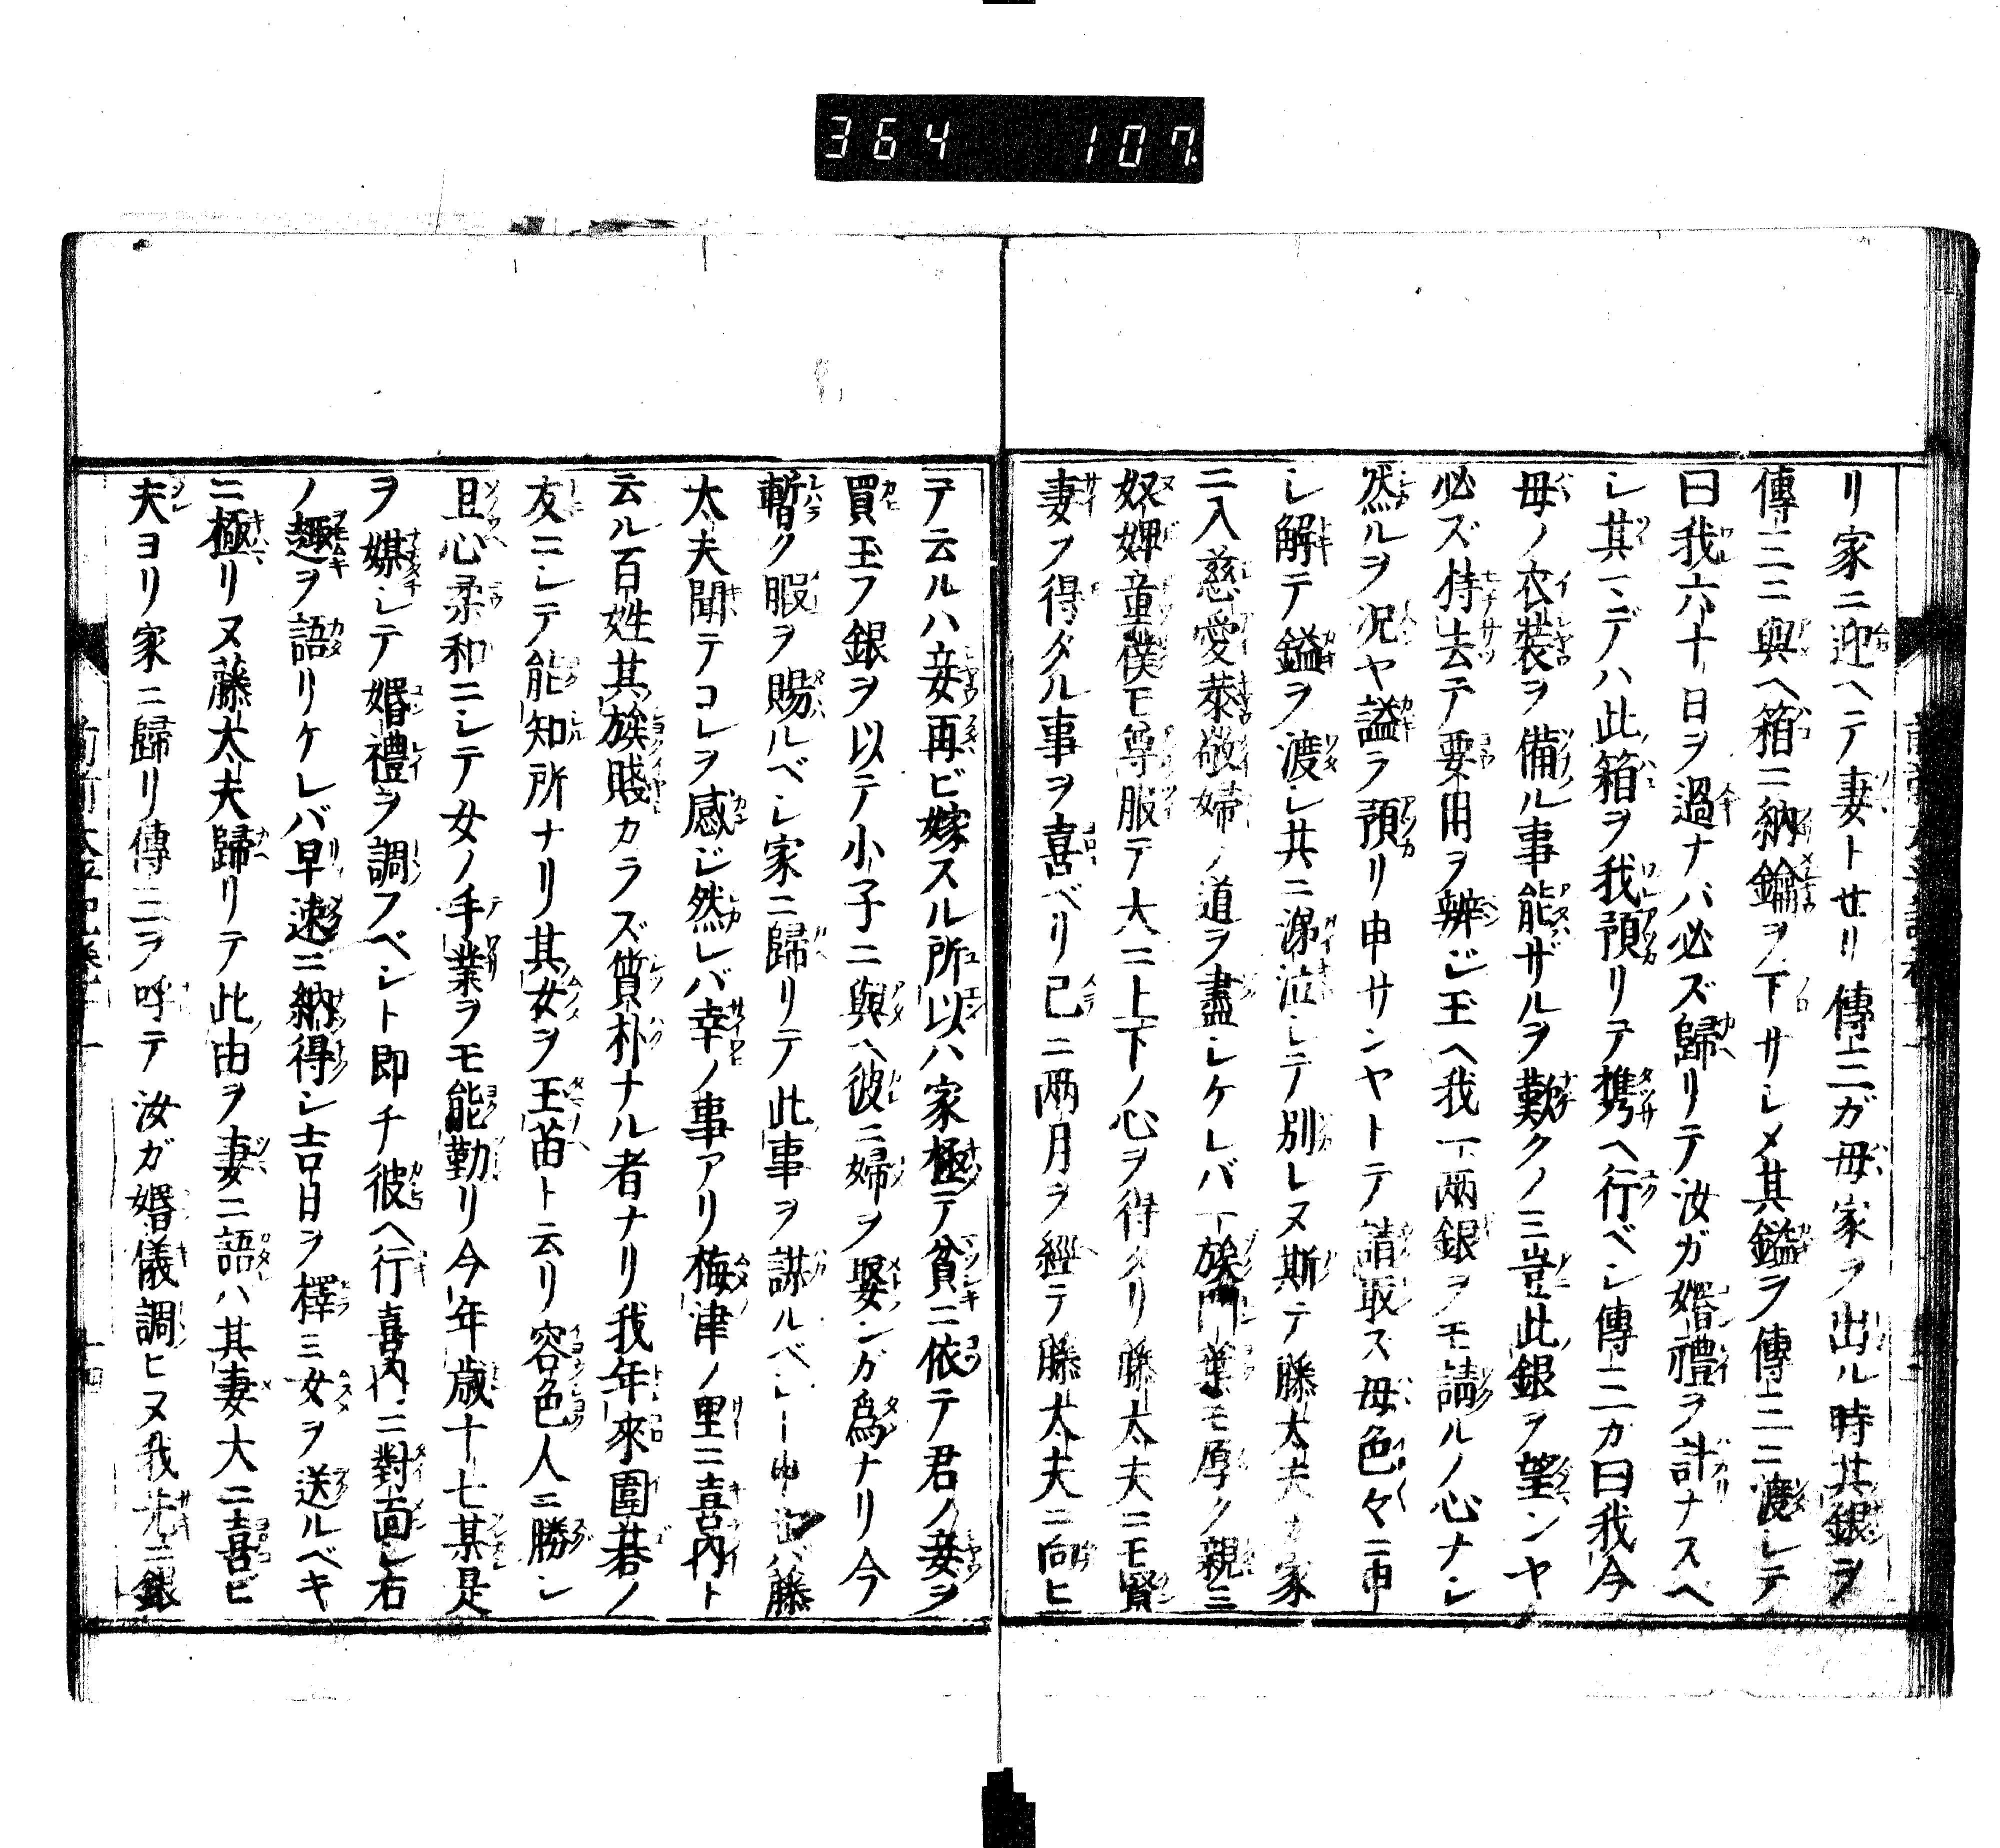 364 107
リ家ニ迎ヘテ妻トせリ傳三ガ母家ヲ出ル時其銀ヲ
傳三ニ與ヘ箱ニ納鑰ヲ下サシメ其鎰ヲ傳三ニ渡シテ
曰我六十日ヲ過ナバ必ズ歸リテ汝ガ婚禮ヲ計ナスヘ
シ其マデハ此箱ヲ我預リテ携ヘ行ベシ傳三カ曰我今
母ノ衣裝ヲ備ル事能ザルヲ歎クノミ豈此銀ヲ望ンヤ
必ズ持去テ要用ヲ辨ジ玉ヘ我一兩銀ヲモ請ルノ心ナシ
然ルヲ况ヤ鎰ヲ預リ申サンヤトテ請取ス母色々ニ申
シ解テ鎰ヲ渡シ共ニ涕泣シテ別レヌ斯テ藤太夫カ家
ニ入慈愛恭敬婦ノ道ヲ盡シケレバ一族門葉モ厚ク親ミ
奴婢童僕モ尊服テ大ニ上下ノ心ヲ得タリ藤太夫ニモ賢
妻ヲ得タル事ヲ喜ベリ已ニ两月ヲ經テ藤太夫ニ向ヒ
テ云ルハ妾再ビ嫁スル所以ハ家極テ貧ニ依テ君ノ妾ヲ
買玉フ銀ヲ以テ小子ニ與ヘ彼ニ婦ヲ娶ンガ爲ナリ今
暫ク暇ヲ賜ルベシ家ニ歸リテ此事ヲ謀ルベシト申セバ藤
太夫聞テコレヲ感ジ然レバ幸ノ事アリ梅津ノ里ニ喜内ト
云ル百姓其族賤カラズ質朴ナル者ナリ我年來圍碁ノ
友ニシテ能知所ナリ其女ヲ玉苗ト云リ容色人ニ勝レ
且心柔和ニシテ女ノ手業ヲモ能勤リ今年歳十七某是
ヲ媒シテ婚禮ヲ調フベシト即チ彼ヘ行喜内ニ對面シ右
ノ趣ヲ語リケレバ早速ニ納得シ吉日ヲ擇ミ女ヲ送ルベキ
ニ極リヌ藤太夫歸リテ此由ヲ妻ニ語ハ其妻大ニ喜ビ
夫ヨリ家ニ歸リ傳三ヲ呼テ汝ガ婚儀調ヒヌ我先ニ銀